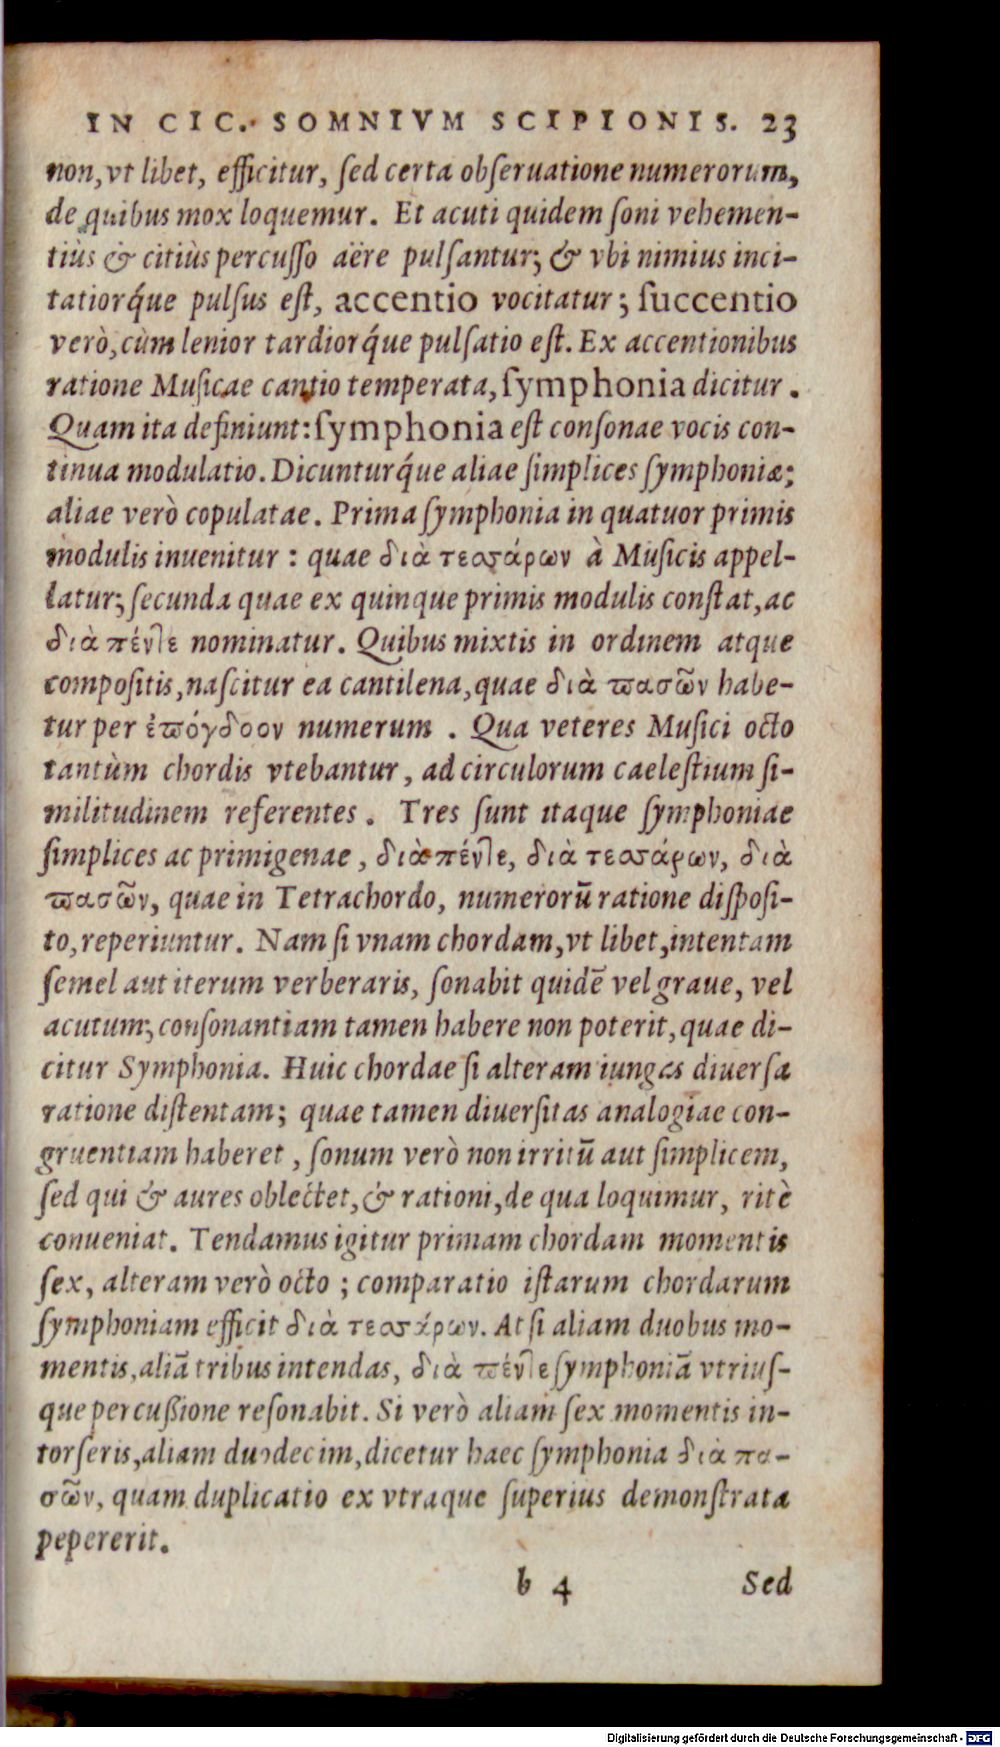 IN CIC. SOMNIVM SCIPIONIS. 23
non, vt libet, efficitur, ſed certa obſeruatione numerorum,
de quibus mox loquemur. Et acuti quidem ſoni vehemen-
tiùs & citiùs percuſſo aëre pulſantur; & vbi nimius inci-
tatiorq́ue pulſus eſt, accentio vocitatur; ſuccentio
verò, cùm lenior tardiorq́ue pulſatio eſt. Ex accentionibus
ratione Muſicae cantio temperata, ſymphonia dicitur.
Quam ita definiunt: ſymphonia eſt conſonae vocis con-
tinua modulatio. Dicunturq́ue aliae ſimplices ſymphoniæ;
aliae verò copulatae. Prima ſymphonia in quatuor primis
modulis inuenitur: quae διὰ τεσσάρων à Muſicis appel-
latur; ſecunda quae ex quinque primis modulis conſtat, ac
διὰ πέντε nominatur. Quibus mixtis in ordinem atque
compoſitis, naſcitur ea cantilena, quae διὰ πασῶν habe-
tur per ἐπόγδοον numerum. Qua veteres Muſici octo
tantùm chordis vtebantur, ad circulorum caeleſtium ſi-
militudinem referentes. Tres ſunt itaque ſymphoniae
ſimplices ac primigenae, διὰ πέντε, διὰ τεσσάρων, διὰ
πασῶν, quae in Tetrachordo, numerorũ ratione diſpoſi-
to, reperiuntur. Nam ſi vnam chordam, vt libet, intentam
ſemel aut iterum verberaris, ſonabit quidẽ vel graue, vel
acutum; conſonantiam tamen habere non poterit, quae di-
citur Symphonia. Huic chordae ſi alteram iungas diuerſa
ratione diſtentam; quae tamen diuerſitas analogiae con-
gruentiam haberet, ſonum verò non irritũ aut ſimplicem,
ſed qui & aures oblectet, & rationi, de qua loquimur, ritè
conueniat. Tendamus igitur primam chordam momentis
ſex, alteram verò octo; comparatio iſtarum chordarum
ſymphoniam efficit διὰ τεσσάρων. At ſi aliam duobus mo-
mentis, aliã tribus intendas, διὰ πέντε ſymphoniã vtriuſ-
que percußione reſonabit. Si verò aliam ſex momentis in-
torſeris, aliam duodecim, dicetur haec ſymphonia διὰ πα-
σῶν, quam duplicatio ex vtraque ſuperius demonſtrata
pepererit.
b 4 Sed
Digitalisierung gefördert durch die Deutsche Forschungsgemeinschaft - DFG